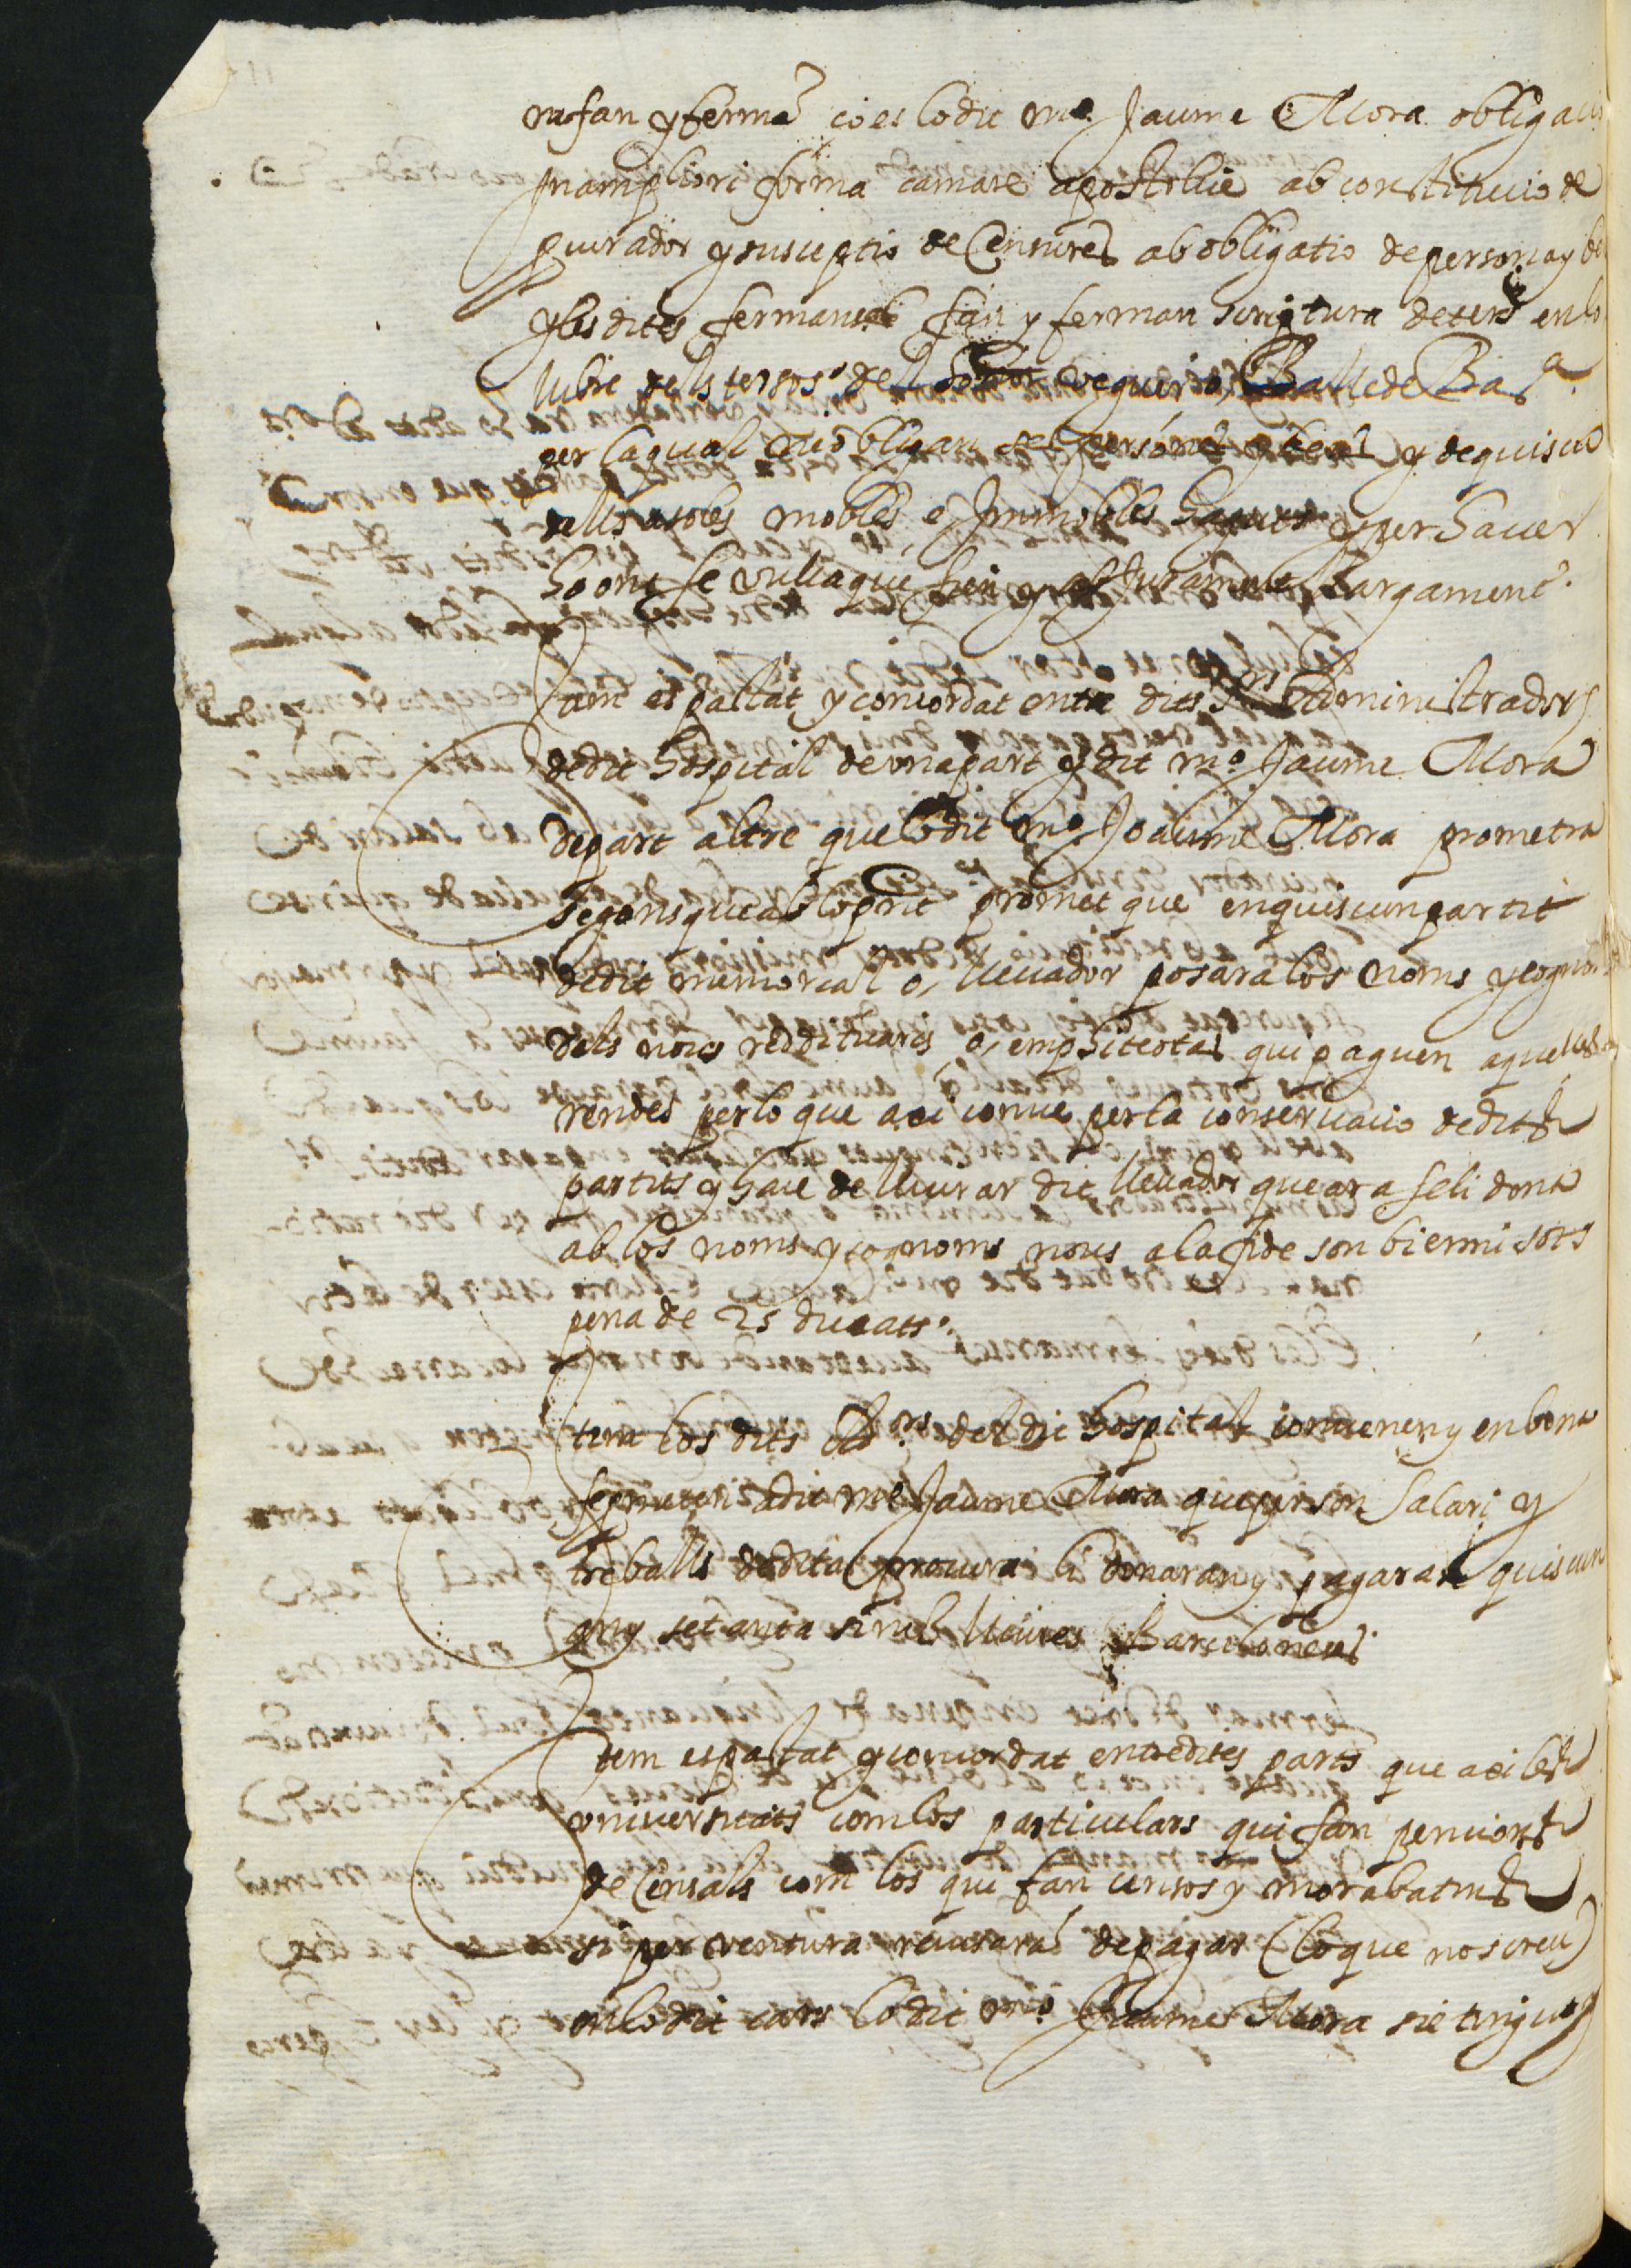 ne fan y ferme ço es lo dit mº Jaume Mora obligacio
in ampliori forma camare apostolice ab constitucio de
pcurador y suscepcio de Censures ab obligatio de persona y be
y les dites fermanses fan y ferman scriptura de ters en lo
llibre dells tersos de veguer o Batlle de Barª
per la qual ne obligan ses persones y bens y de quiscu
dells a soles mobles e Immobles haguts y per haver
ho ont se vulla que sien y ab Jurament llargament.
Item es pactat y concordat entre dits Sors Administradors
de dit hospital de una part y dit mº Jaume Mora
de part altre que lo dit mº Joaume Mora prometra
segons que ab lo pnt promet que en quiscun partit
de dit memorial o, llevador posara los noms y cognoms
dels nous reddituaris o, emphiteotas qui paguen aquelles
rendes per lo que axi conve per la conservacio de dits
partits y haie de lliurar dit llevador que ara se li dona
ab los noms y cognoms nous a la fi de son bienni sots
pena de 25 ducats.
Item los dits Adors del dit hospital convenen y en bona
fe prometen a dit mº Jaume Mora que per son salari y
treballs de dita procura li donaran y pagaran quiscun
any setanta sinch lliures Barceloneses
Item es pactat y concordat entre dites parts que axi les
universitats com los particulars qui fan pencions
de Censals com los qui fan censos y morabatins
si per ventura recusaran de pagar (lo que nos creu)
en lo dit cars lo dit mº Jaume Mora sie tingut